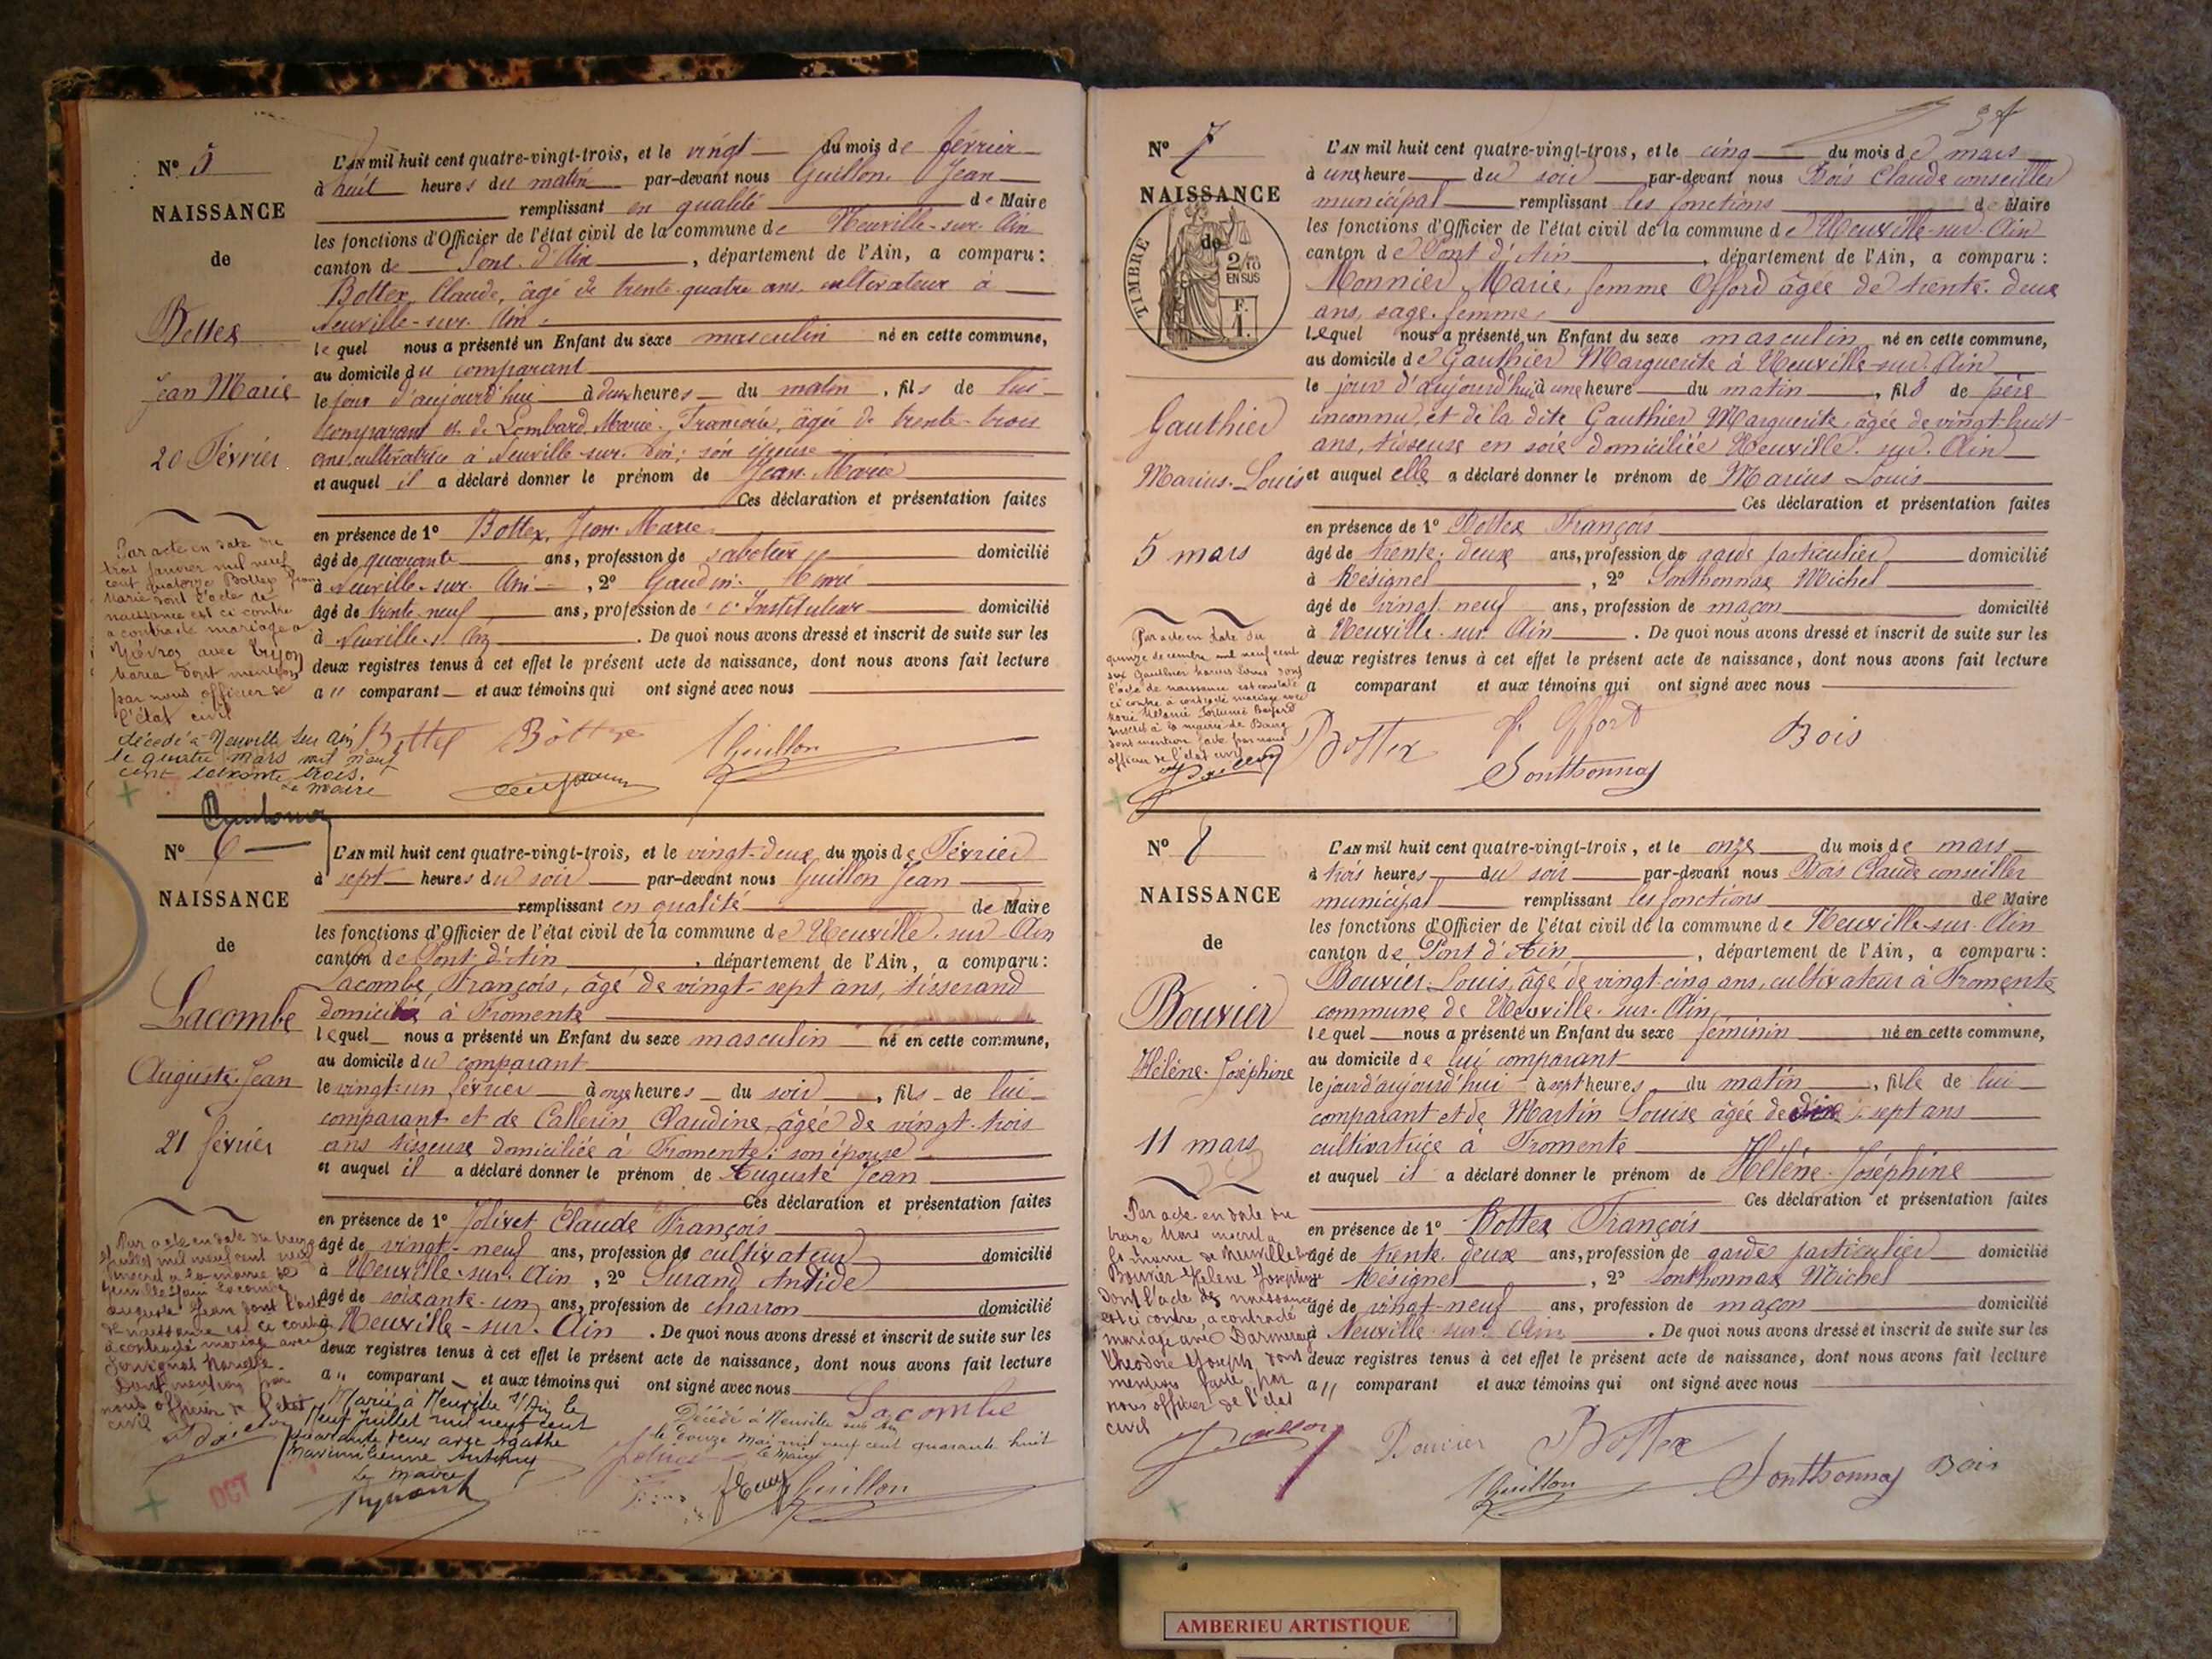 N° 5
NAISSANCE
de
Bottex
Jean Marie
20 Février
L'AN mil huit cent quatre-vingt-trois, et le vingt du mois de février
à huit heures du matin par-devant nous Guillon Jean
remplissant en qualité de Maire
les fonctions d'Officier de l'état civil de la commune de Neuville-sur-Ain
canton de Pont-d'Ain, département de l'Ain, a comparu :
Bottex, Claude, âgé de trente-quatre ans, cultivateur à
Neuville-sur-Ain
lequel nous a présenté un Enfant du sexe masculin né en cette commune,
au domicile du comparant
le jour d'aujourd'hui à deux heures du matin, fils de lui
comparant et de Lombard, Marie-Françoise, âgée de trente-trois
ans, cultivatrice à Neuville-sur-Ain; son épouse
et auquel il a déclaré donner le prénom de Jean-Marie
Ces déclaration et présentation faites
en présence de 1° Bottex, Jean-Marie
âgé de quarante ans, profession de sabotier domicilié
à Neuville-sur-Ain, 2° Gaudin
âgé de trente-neuf ans, profession de Instituteur domicilié
à Neuville-s-Ain. De quoi nous avons dressé et inscrit de suite sur les
deux registres tenus à cet effet le présent acte de naissance, dont nous avons fait lecture
au comparant et aux témoins qui ont signé avec nous
Par acte en date du
trois janvier mil neuf
cent quatorze Bottex Jean
Marie dont l'acte de
naissance est ci contre
a contracté mariage à
avec
Maria dont mention
par nous officier de
l'état civil
décédé à Neuville sur Ain
le quatre mars mil neuf
cent soixante trois.
Le maire
Bottex Bottex Guillon
N° 6
NAISSANCE
de
Lacombe
Auguste-Jean
21 février
L'AN mil huit cent quatre-vingt-trois, et le vingt-deux du mois de Février
à sept heures du soir par-devant nous Guillon Jean
remplissant en qualité de Maire
les fonctions d'Officier de l'état civil de la commune de Neuville-sur-Ain
canton de Pont-d'Ain, département de l'Ain, a comparu :
Lacombe, François, âgé de vingt-sept ans, tisserand
domicilié à Fromente
lequel nous a présenté un Enfant du sexe masculin né en cette commune,
au domicile du comparant
le vingt-un février à onze heures du soir, fils de lui
comparant et de Callerin Claudine, âgée de vingt-trois
ans tisseuse domiciliée à Fromente; son épouse
et auquel il a déclaré donner le prénom de Auguste Jean
Ces déclaration et présentation faites
en présence de 1° Jolivet Claude François
âgé de vingt-neuf ans, profession de cultivateur domicilié
à Neuville-sur-Ain, 2° Surand Andide
âgé de soixante-un ans, profession de charron domicilié
à Neuville-sur-Ain. De quoi nous avons dressé et inscrit de suite sur les
deux registres tenus à cet effet le présent acte de naissance, dont nous avons fait lecture
au comparant et aux témoins qui ont signé avec nous
Par acte en date du treize
juillet mil neuf cent neuf
inscrit à la mairie de
Neuville s/ Ain Lacombe
Auguste Jean dont l'acte
de naissance est ci contre
a contracté mariage avec
dont mention par
nous officier de l'état
civil
Marié à Neuville s/ Ain le
neuf juillet mil neuf cent
quarante deux avec Agathe
Maximilienne
Le maire
Décédé à Neuville sur Ain
le douze mai mil neuf cent quarante huit
Le Maire
Lacombe
Guillon
OCT
37
N° 7
NAISSANCE
de
TIMBRE
2/10
EN SUS
F.
1.
Gauthier
Marius-Louis
5 mars
L'AN mil huit cent quatre-vingt-trois, et le cinq du mois de mars
à une heure du soir par-devant nous Bois Claude conseiller
municipal remplissant les fonctions de Maire
les fonctions d'Officier de l'état civil de la commune de Neuville-sur-Ain
canton de Pont d'Ain, département de l'Ain, a comparu :
Monnier, Marie, femme Offord âgée de trente-deux
ans, sage-femme
Lequel nous a présenté un Enfant du sexe masculin né en cette commune,
au domicile de Gauthier Marguerite à Neuville-sur-Ain
le jour d'aujourd'hui à une heure du matin, fils de père
inconnu, et de la dite Gauthier Marguerite, âgée de vingt-huit
ans, tisseuse en soie domiciliée Neuville-sur-Ain
et auquel elle a déclaré donner le prénom de Marius Louis
Ces déclaration et présentation faites
en présence de 1° Bottex François
âgé de trente-deux ans, profession de garde particulier domicilié
à Résignel, 2° Sonthonnax Michel
âgé de vingt-neuf ans, profession de maçon domicilié
à Neuville-sur-Ain. De quoi nous avons dressé et inscrit de suite sur les
deux registres tenus à cet effet le présent acte de naissance, dont nous avons fait lecture
a comparant et aux témoins qui ont signé avec nous
Par acte en date du
quinze décembre mil neuf cent
six Gauthier Marius Louis dont
l'acte de naissance est constaté
ci contre a contracté mariage avec
Marie Mélanie
inscrit à la mairie de Bourg
dont mention faite par nous
officier de l'état civil
Bottex Offord Bois
Sonthonnax
N° 8
NAISSANCE
de
Bouvier
Hélène-Joséphine
11 mars
L'AN mil huit cent quatre-vingt-trois, et le onze du mois de mars
à trois heures du soir par-devant nous Bois Claude conseiller
municipal remplissant les fonctions de Maire
les fonctions d'Officier de l'état civil de la commune de Neuville-sur-Ain
canton de Pont d'Ain, département de l'Ain, a comparu :
Bouvier Louis, âgé de vingt-cinq ans, cultivateur à Fromente
commune de Neuville-sur-Ain
lequel nous a présenté un Enfant du sexe féminin né en cette commune,
au domicile de lui comparant
le jour d'aujourd'hui à sept heures du matin, fille de lui
comparant et de Martin Louise âgée de dix-sept ans
cultivatrice à Fromente
et auquel il a déclaré donner le prénom de Hélène-Joséphine
Ces déclaration et présentation faites
en présence de 1° Bottex François
âgé de trente-deux ans, profession de garde particulier domicilié
à Résignel, 2° Sonthonnax Michel
âgé de vingt-neuf ans, profession de maçon domicilié
à Neuville-sur-Ain. De quoi nous avons dressé et inscrit de suite sur les
deux registres tenus à cet effet le présent acte de naissance, dont nous avons fait lecture
au comparant et aux témoins qui ont signé avec nous
Par acte en date du
treize mars inscrit à
la mairie de Neuville
Bouvier Hélène Joséphine
dont l'acte de naissance
est ci contre, a contracté
mariage avec
Théodore Joseph, dont
mention faite par
nous officier de l'état
civil
Bouvier Bottex
Guillon Sonthonnax Bois
AMBERIEU ARTISTIQUE